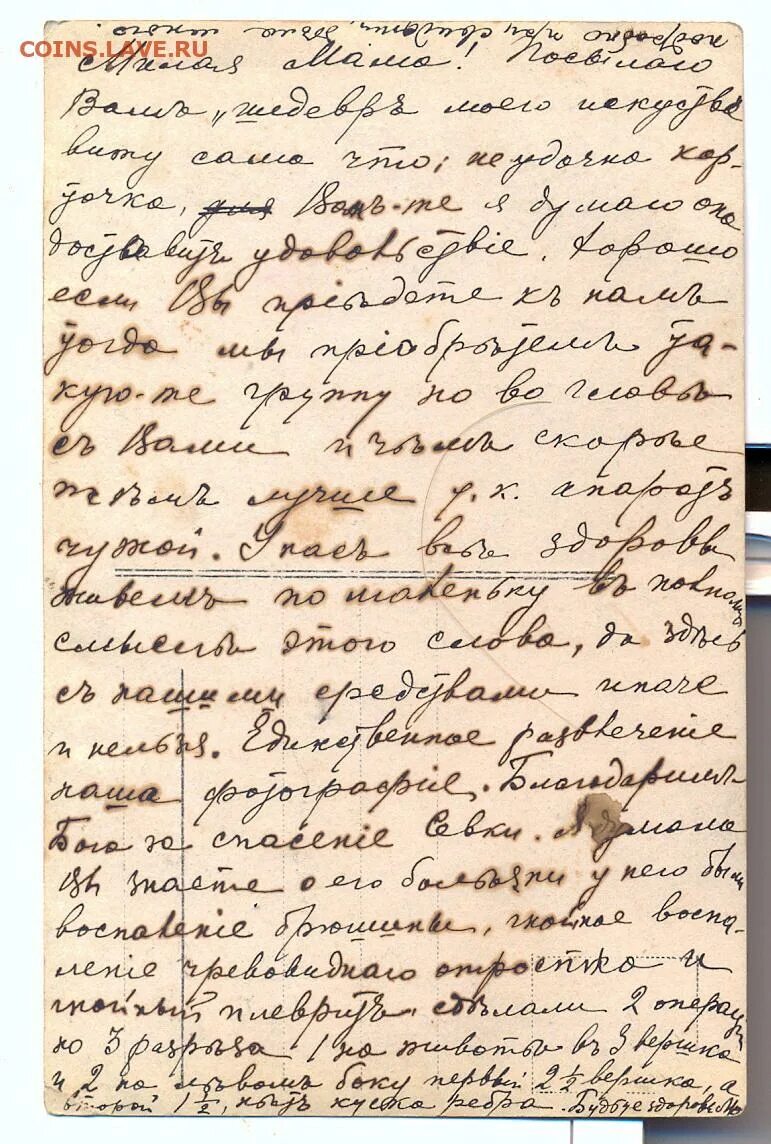 COINS.LAVE.RU
подробно при свиданіи,
Милая Мама! Посылаю
Вамъ „шедевръ моего искуства
вижу сама что неудачна кар-
точка, для Вамъ-же я думаю она
доставитъ удовольствіе. Хорошо
если Вы пріѣдете къ намъ
тогда мы пріобрѣтемъ та-
кую-же группу но во главѣ
съ Вами и чѣмъ скорѣе
тѣмъ лучше т.к. апаратъ
чужой. У насъ всѣ здоровы
живемъ по маленьку въ полномъ
смыслѣ этого слова, да здѣсь
съ нашими средствами иначе
и нельзя. Единственное развлеченіе
наша фотографіе. Благодаримъ
Бога за спасеніе Севки. Я думала
Вы знаете о его болѣзни у него были
воспаленіе брюшины, гнойное воспа-
леніе червовиднаго отростка и
гнойный плевритъ. сдѣлали 2 операціи
но 3 разрѣза 1 на животѣ въ 3 вершка
и 2 на лѣвомъ боку первый 2½ вершка, а
второй 1½, нѣтъ куска ребра. Будьте здоровы